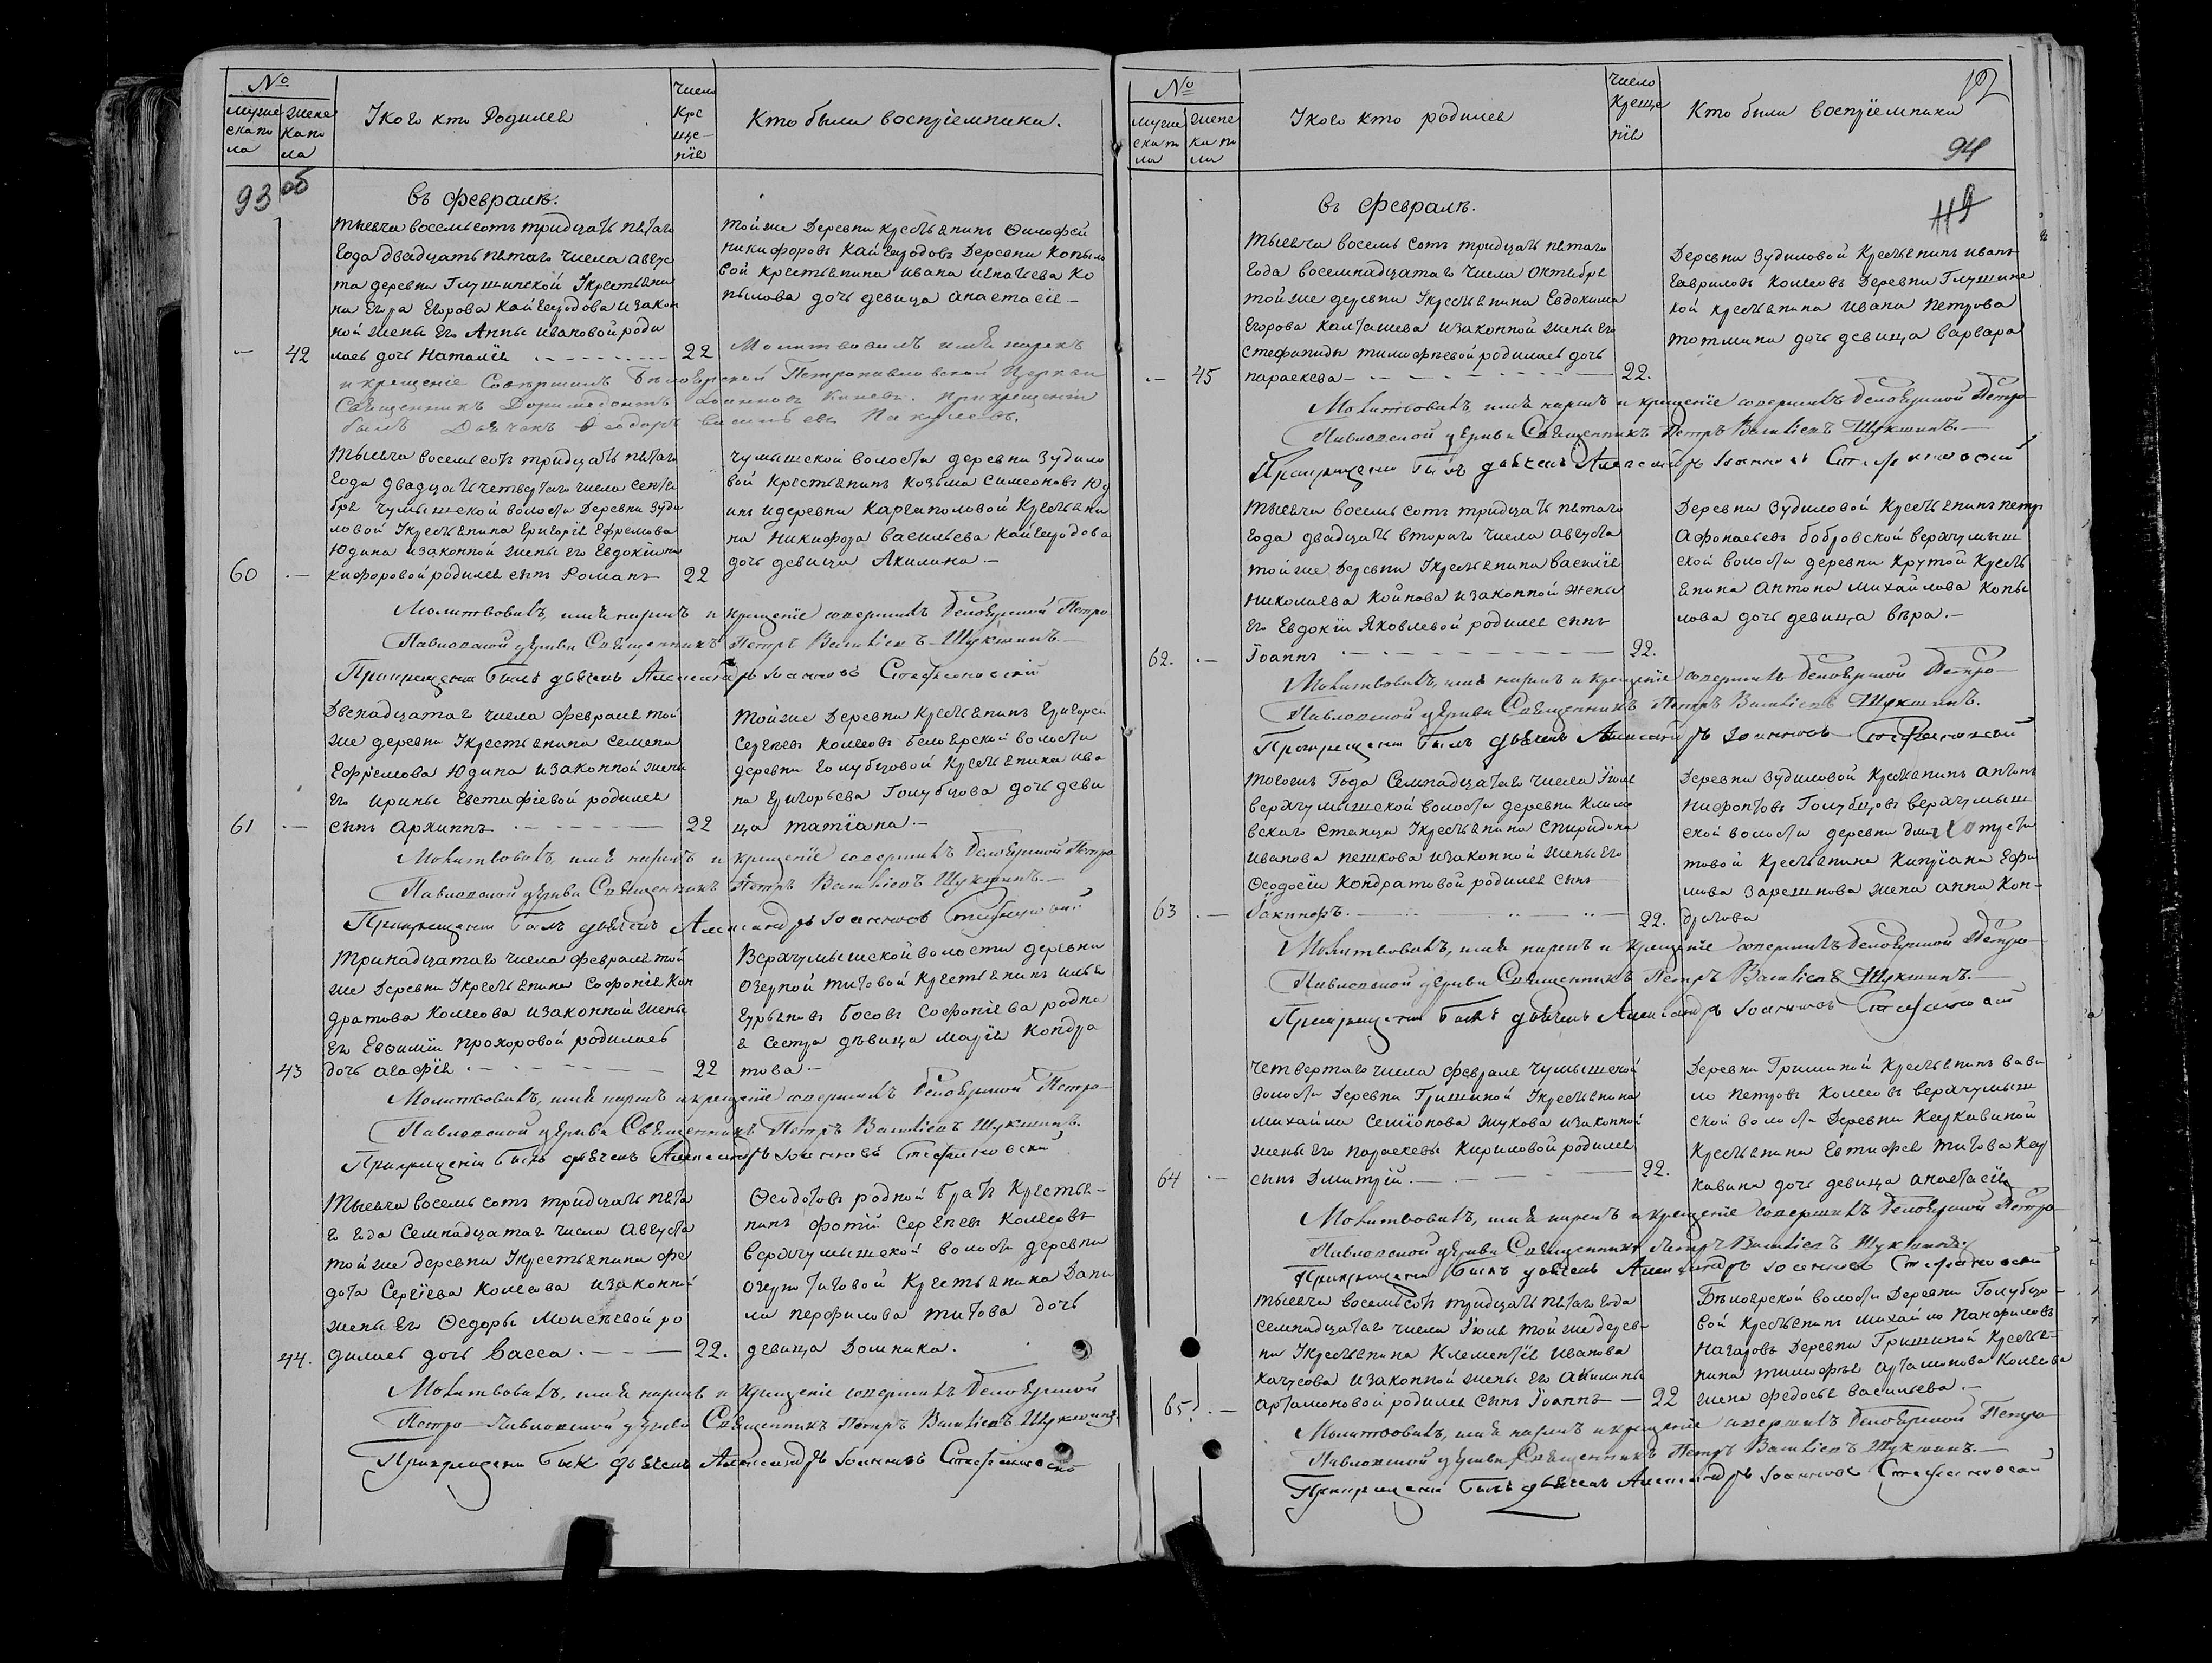 №
мужеска пола
женска пола
У кого кто Родился
число крещенія
Кто были воспріемники.
93 об
въ февралѣ.
тысяча восемьсотъ тридцать пятаго
года двадцать пятаго числа авгус
та деревни Глушинской Укрестьяни
на Егора Егорова Кайгородова изакон
ной жены его Анны Ивановой роди
— 42 лась дочь Наталія 22
тойже деревни крестьянинъ Ѳимофей
Никифоровъ Кайгородовъ деревни Копыло
вой крестьянина Ивана Игнатьева Ко
пылова дочь девица анастасія —
Молитвовалъ имя нарекъ
и крещеніе Совершилъ Бѣлоярской Петропавловской Церкви
Священникъ Доримедонтъ Іоанновъ При крещеніи
былъ Дьячекъ Ѳеодоръ Васильевъ
тысяча восемьсотъ тридцать пятаго
года двадцать четвертаго числа сентя
бря чумышской волости деревни Зуди
ловой Укрестьянина Григорія Ефремова
Юдина изаконной жены его Евдокіи ни
60 — кифоровой родился сынъ Романъ 22
чумышской волости деревни Зудило
вой крестьянинъ Козьма Симеоновъ Юд
инъ идеревни Каргаполовой Крестьяни
на Никифора Васильева Кайгородова
дочь девица Акилина —
Молитвовалъ, имя нарекъ и крещеніе совершилъ Белоярской Петро
Павловской церкви Священникъ Петръ Васильевъ Шукшинъ.
Прикрещеніи былъ дьячекъ Александръ Іоанновъ Стефановскій
Двенадцатаго числа февраля той
же деревни Укрестьянина Семена
Ефремова Юдина изаконной жены
его Ирины Евстафіевой родился
61 — сынъ Архиппъ 22
тойже деревни крестьянинъ Григорей
Сергѣевъ Колесовъ белоярской волости
деревни Голубцовой Крестьянина ива
на Григорьева Голубцова дочь деви
ца татіана. —
Молитвовалъ, имя нарекъ и крещеніе совершилъ Белоярской Петро
Павловской церкви Священникъ Петръ Васильевъ Шукшинъ. —
Прикрещеніи былъ дьячекъ Александръ Іоанновъ Стефановскій
тринадцатаго числа февраля той
же деревни Укрестьянина Софонія Кон
дратова Колесова изаконной жены
его Евѳиміи Прохоровой родилась
43 дочь агафія 22
Верхчумышской волости деревни
Озерной титовой Крестьянинъ илья
Гурьяновъ Босовъ Софоніева родна
я Сестра дѣвица марія Кондра
това —
Молитвовалъ, имя нарекъ и крещеніе совершилъ Белоярской Петро
Павловской церкви Священникъ Петръ Васильевъ Шукшинъ.
Прикрещеніи былъ дьячекъ Александръ Іоанновъ Стефановскій
тысяча восемь сотъ тридцать пята
го года Семнадцатаго числа Августа
той же деревни Укрестьянина Ѳе
дота Сергіева Колесова изаконной
жены его Ѳедоры Моисѣевой ро
44. дилась дочь Васса. — 22.
Ѳеодотовъ родной братъ Крестья-
нинъ фотій Сергѣевъ Колесовъ
Верхчумышской волости деревни
Озерно титовой Крестьянина Дани
ла перфилова титова дочь
девица Домника.
Молитвовалъ, имя нарекъ и крещеніе совершилъ Белоярской
Петро-Павловской церкви Священникъ Петръ Васильевъ Шукшинъ.
Прикрещеніи былъ дьячекъ Александръ Іоанновъ Стефановскій
№
мужеска пола
женска пола
У кого кто родился
число крещенія
Кто были воспріемники
94
въ февралѣ.
тысяча восемь сотъ тридцать пятаго
года восемнадцатаго числа октября
той же деревни Укрестьянина Евдокима
Егорова Калташева изаконной жены его
Стефаниды тимофѣевой родилась дочь
— 45 параскева — 22.
Деревни Зудиловой Крестьянинъ иванъ
Гавриловъ Колесовъ Деревни Глушинс
кой крестьянина ивана Петрова
тотмина дочь девица варвара
Молитвовалъ, имя нарекъ и крещеніе совершилъ Белоярской Петро
Павловской церкви Священникъ Петръ Васильевъ Шукшинъ. —
Прикрещеніи былъ дьячекъ Александръ Іоанновъ Стефановскій
тысяча восемь сотъ тридцать пятаго
года двадцать втораго числа августа
той же Деревни Укрестьянина Василія
Николаева Койнова изаконной жены
его Евдокіи Яковлевой родился сынъ
62. — Іоаннъ — 22.
Деревни Зудиловой Крестьянинъ петръ
Афонасьевъ бобровской верхчумыш
ской волости деревни Крутой Кресть
янина Антона михайлова Копы
лова дочь девица вѣра. —
Молитвовалъ, имя нарекъ и крещеніе совершилъ Белоярской Петро
Павловской церкви Священникъ Петръ Васильевъ Шукшинъ.
Прикрещеніи былъ дьячекъ Александръ Іоанновъ Стефановскій
тогожъ Года Семнадцатаго числа Іюля
верхчумышской волости деревни Климо
вскаго Станца Укрестьянина Спиридона
Иванова пешкова изаконной жены его
Ѳеодосіи Кондратовой родился сынъ
63 — Іакинфъ. — 22.
Деревни Зудиловой Крестьянинъ антонъ
Нифонтовъ Голубцовъ верхчумыш
ской волости деревни
товой Крестьянина Кипріана Ефи
мова жена анна Кон-
дратова
Молитвовалъ, имя нарекъ и крещеніе совершилъ Белоярской Петро
Павловской церкви Священникъ Петръ Васильевъ Шукшинъ. —
Прикрещеніи былъ дьячекъ Александръ Іоанновъ Стефановскій
четвертаго числа февраля чумышской
волости Деревни Гришиной Укрестьянина
михайла Семіонова жукова изаконной
жены его параскевы Кириловой родился
64 — сынъ Димитрій. — 22.
Деревни Гришиной Крестьянинъ вави
ло петровъ Колесовъ верхчумыш
ской волости Деревни Кеукавиной
Крестьянина Евтифея титова Кеу
кавина дочь девица анастасія
Молитвовалъ, имя нарекъ и крещеніе совершилъ Белоярской Петро
Павловской церкви Священникъ Петръ Васильевъ Шукшинъ.
Прикрещеніи былъ дьячекъ Александръ Іоанновъ Стефановскій
тысяча восемьсотъ тридцать пятаго года
Семнадцатаго числа Іюля той же дерев-
ни Укрестьянина Клементія Иванова
Качусова изаконной жены его Акилины
65. — артамоновой родился сынъ Іоаннъ — 22
Бѣлоярской волости Деревни Голубцо-
вой Крестьянинъ михайло Панфиловъ
Нагаровъ Деревни Гришиной Крестья-
нина тимофѣя артамонова Колесова
жена федосья васильева. —
Молитвовалъ, имя нарекъ и крещеніе совершилъ Белоярской Петро
Павловской церкви Священникъ Петръ Васильевъ Шукшинъ. —
Прикрещеніи былъ дьячекъ Александръ Іоанновъ Стефановскій